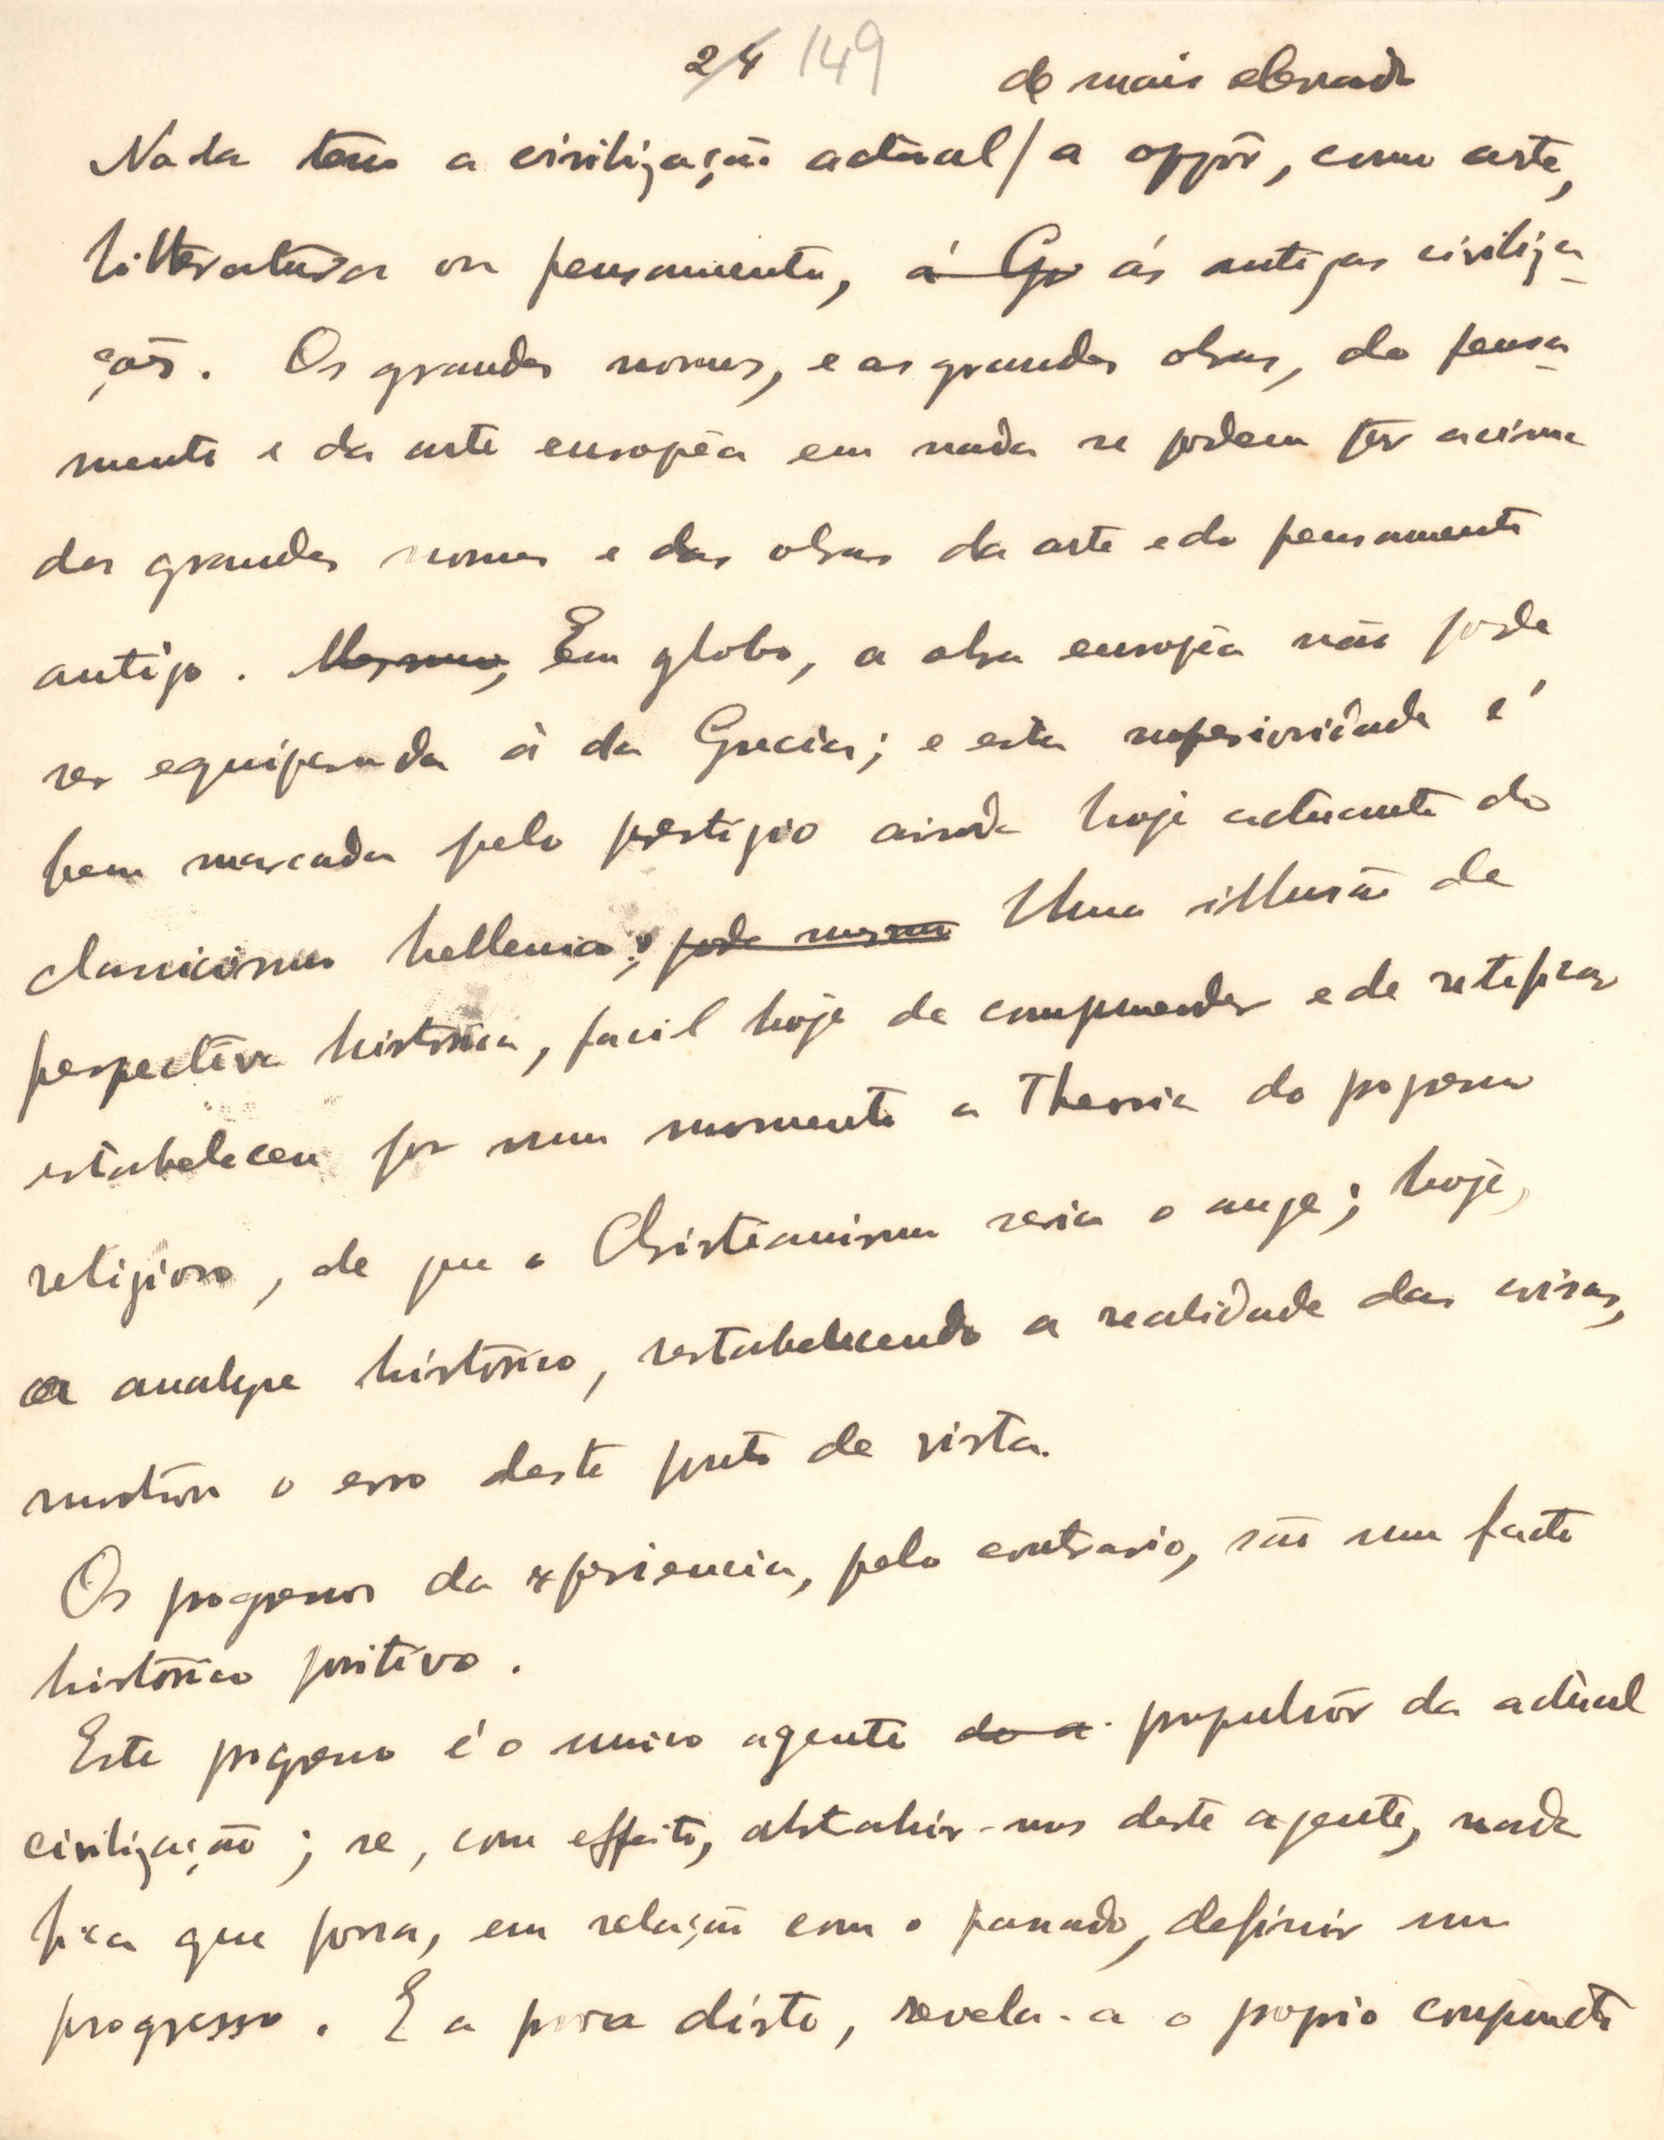 2/4 149
de mais elevado
Nada tem a civilização actual / a oppôr, como arte,
litteratura ou pensamento, á Gr ás antigas civiliza-
ções. Os grandes nomes, e as grandes obras, do pensa-
mento e da arte européa em nada se podem pôr acima
dos grandes nomes e das obras da arte e do pensamento
antigo. Mesmo, Em globo, a obra européa não póde
ser equiparada á da Grecia; e esta superioridade é
bem marcada pelo prestigio ainda hoje actuante do
classicismo hellenico; pode mesmo Uma illusão de
perspectiva historica, facil hoje de comprehender e de retificar
estabeleceu por um momento a theoria do progresso
religioso, de que o Christianismo seria o auge; hoje,
a analyse historica, restabelecendo a realidade das coisas,
mostrou o erro deste ponto de vista.
Os progressos da experiencia, pelo contrario, são um facto
historico positivo.
Este progresso é o unico agente do a propulsôr da actual
civilização; se, com effeito, abstrahir-mos deste agente, nada
fica que possa, em relação com o passado, definir um
progresso. E a prova disto, revela-a o proprio conjuncto